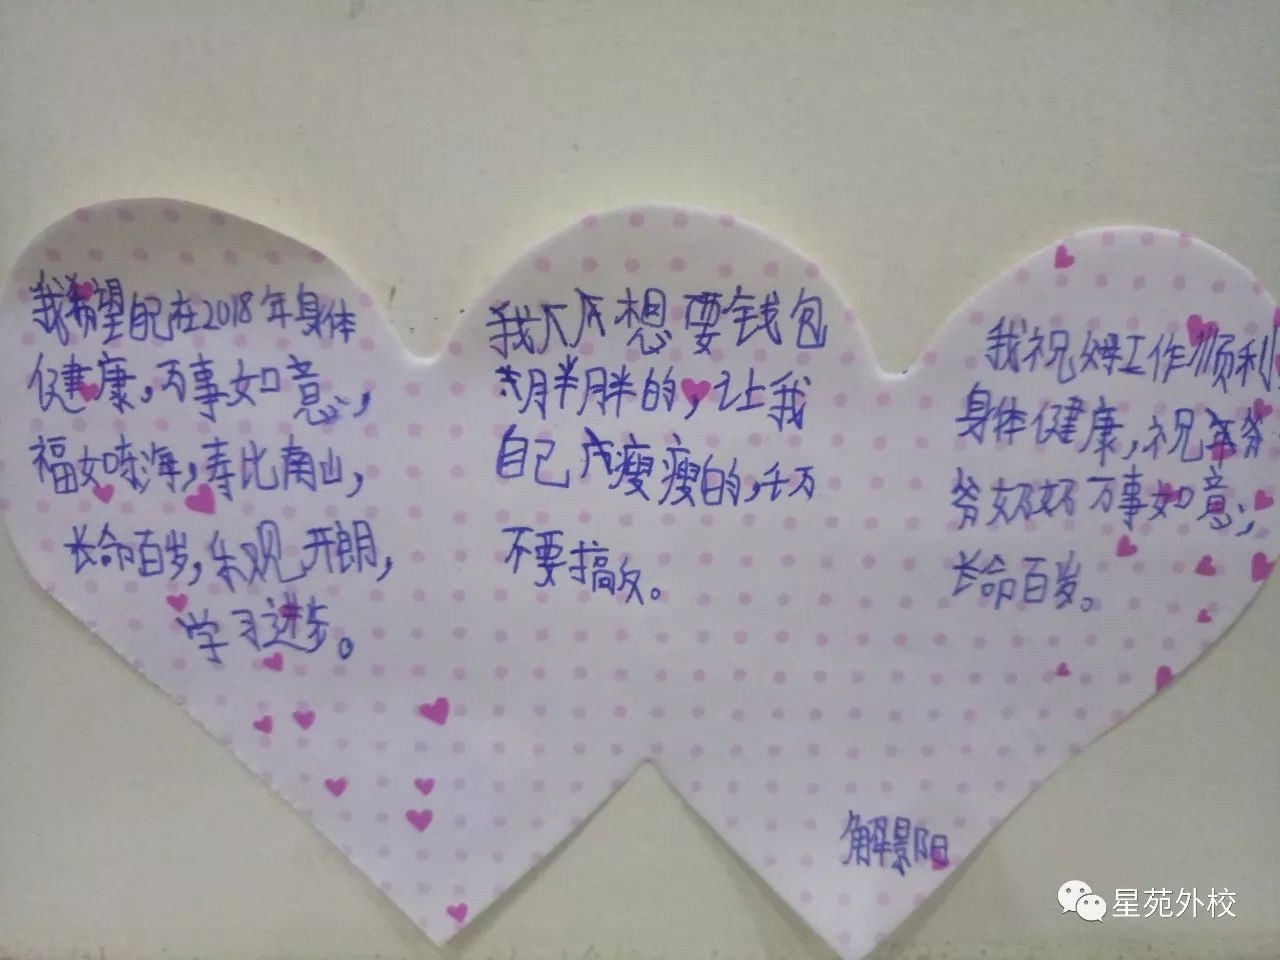 我希望自己在2018年身体
健康,万事如意,
福如东海,寿比南山,
长命百岁,乐观开朗,
学习进步。
我 想要钱包
胖胖的,让我
自己 瘦瘦的,千万
不要搞反。
我祝 工作顺利
身体健康,祝 爷
爷奶奶万事如意,
长命百岁。
解景阳
星苑外校